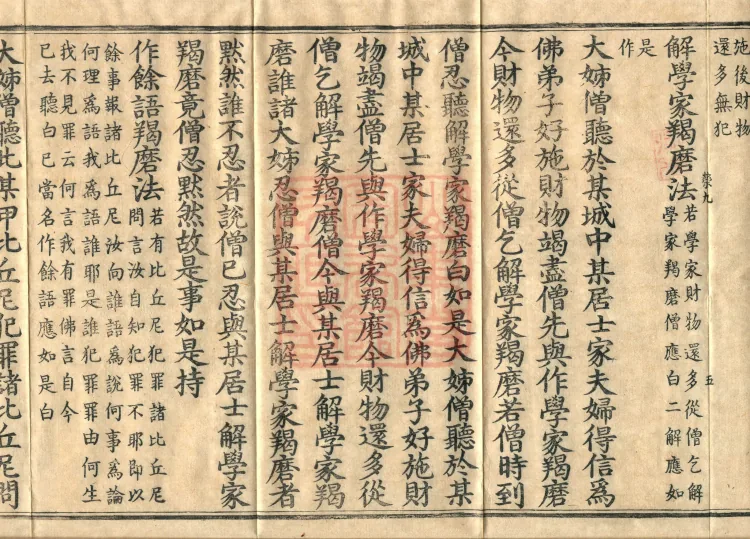 施後財物
還多無犯
解學家羯磨法
若學家財物還多從僧乞解
學家羯磨僧應白二解應如
榮九
五
是
作
大姊僧聽於某城中某居士家夫婦得信爲
佛弟子好施財物竭盡僧先與作學家羯磨
今財物還多從僧乞解學家羯磨若僧時到
僧忍聽解學家羯磨白如是大姊僧聽於某
城中某居士家夫婦得信爲佛弟子好施財
物竭盡僧先與作學家羯磨今財物還多從
僧乞解學家羯磨僧今與某居士解學家羯
磨誰諸大姊忍僧與某居士解學家羯磨者
默然誰不忍者說僧已忍與某居士解學家
羯磨竟僧忍默然故是事如是持
作餘語羯磨法
若有比丘尼犯罪諸比丘尼
問言汝自知犯罪不耶即以
餘事報諸比丘尼汝向誰語爲說何事爲論
何理爲語我爲語誰耶是誰犯罪罪由何生
我不見罪云何言我有罪佛言自今
已去聽白已當名作餘語應如是白
大姊僧聽此某甲比丘尼犯罪諸比丘尼問